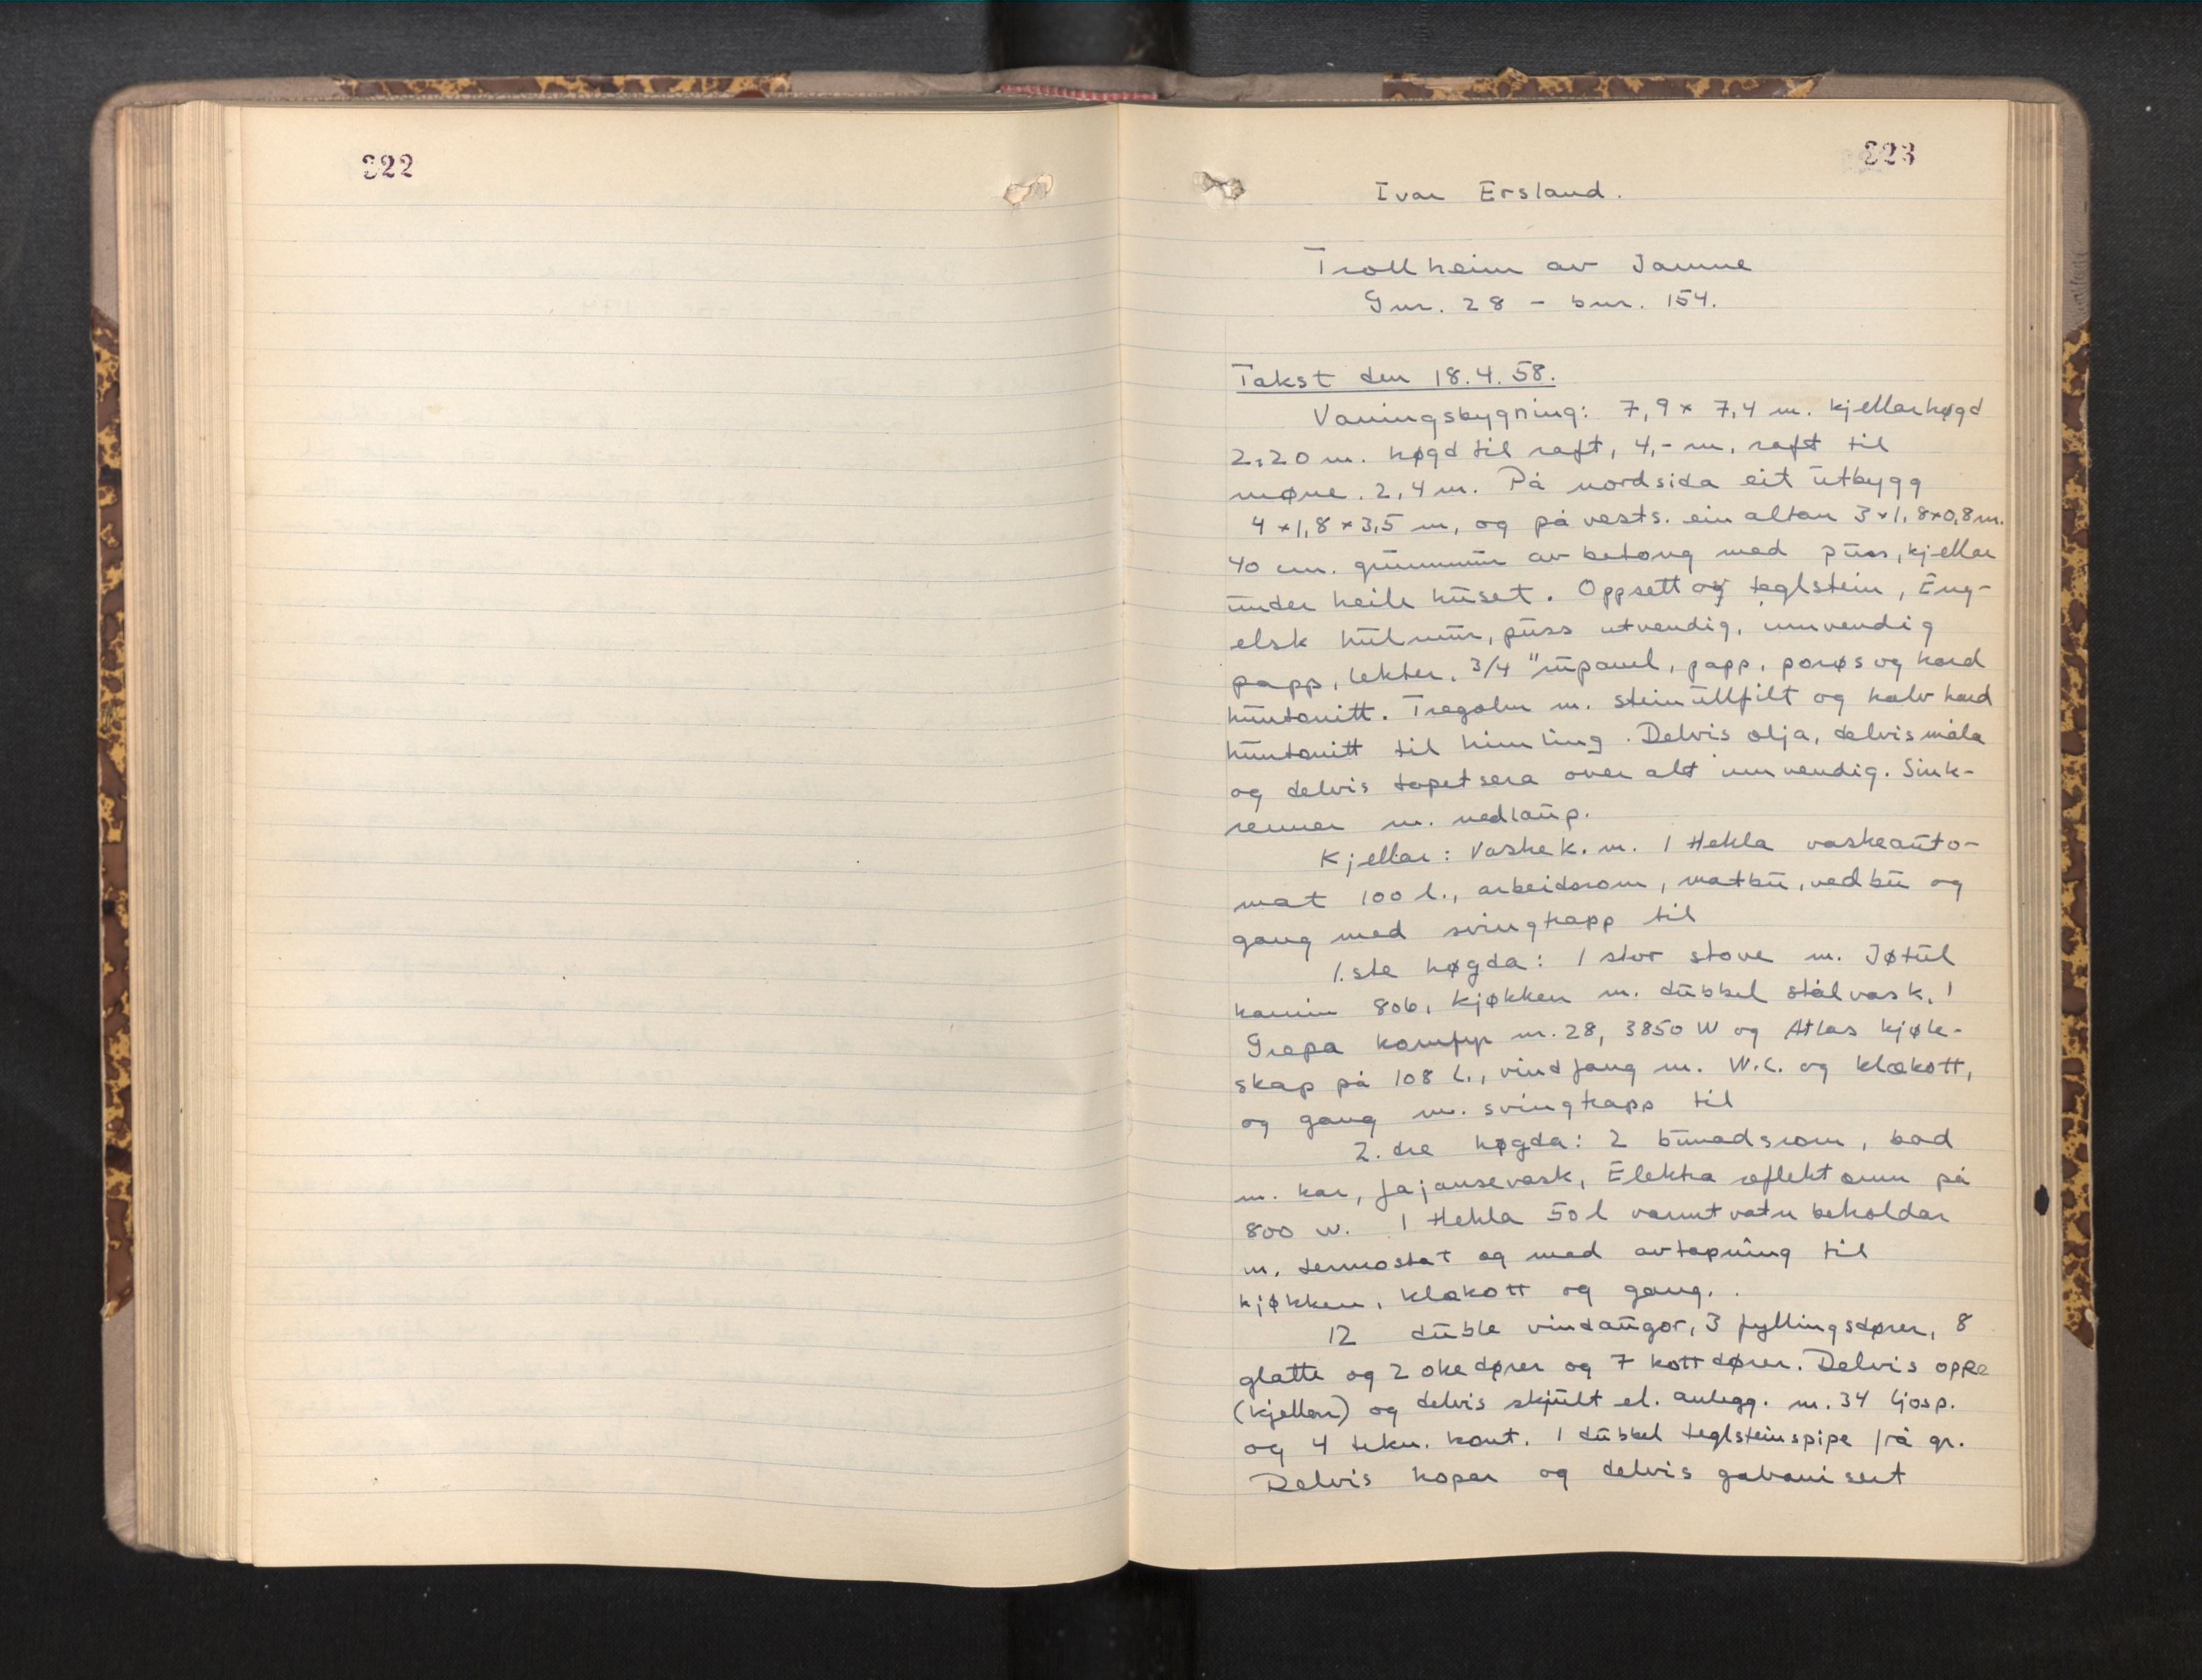 322
323
Ivar Ersland.
Trollheim av Jamne
Gnr. 28 - bnr. 154.
Takst den 18.4.58.
Vaningsbygning: 7,9 x 7,4 m. kjellarhøgd
2,20 m. høgd til raft, 4,- m. raft til
møne. 2,4 m. På nordsida eit utbygg
4 x 1,8 x 3,5 m, og på vests. ein altan 3 x 1,8 x 0,8 m.
40 cm. grunnmur av betong med puss, kjellar
under heile huset. Oppsett av teglstein, Eng-
elsk hulmur, puss utvendig, innvendig
papp, lekter, 3/4" rupanel, papp, porøs og hard
huntonitt. Tregolv m. steinullfilt og halv hard
huntonitt til himling. Delvis olja, delvis måla
og delvis tapetsera over alt innvendig. Sink-
renner m. nedlaup.
Kjellar: Vaskek. m. 1 Hekla vaskeauto-
mat 100 l., arbeidsrom, matbu, vedbu og
gang med svingtrapp til
1.ste høgda: 1 stor stove m. Jøtul
kamin 806, kjøkken m. dubbel stålvask, 1
Grepa komfyr nr. 28, 3850 W og Atlas kjøle-
skap på 108 l., vindfang m. W.C. og klækott,
og gang m. svingtrapp til
2. dre høgda: 2 bunadsrom, bad
m. kar, fajansevask, Elektra reflektomn på
800 w. 1 Hekla 50 l varmtvatnbeholdar
m. termostat og med avtapning til
kjøkken, klækott og gang.
12 duble vindaugor, 3 fyllingsdører, 8
glatte og 2 okedører og 7 kottdører. Delvis ope
(kjellar) og delvis skjult el. anlegg. m. 34 ljosp.
og 4 tekn. kont. 1 dubbel teglsteinspipe frå gr.
Delvis kopar og delvis galvanisert